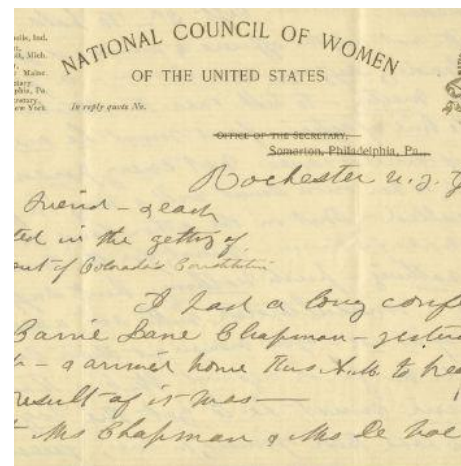 ville, Ind.
Mich.
Maine
phia, Pa.
New York
NATIONAL COUNCIL OF WOMEN
OF THE UNITED STATES
In reply quote No.
OFFICE OF THE SECRETARY,
Somerton, Philadelphia, Pa.,
Rochester N. Y.
Friend - each
ted in the getting of
out of Colorado's Constitution
I had a long conf
Carrie Lane Chapman -
- arrived home this A.M. to
result of it was -
Mrs Chapman & Mrs De Voe